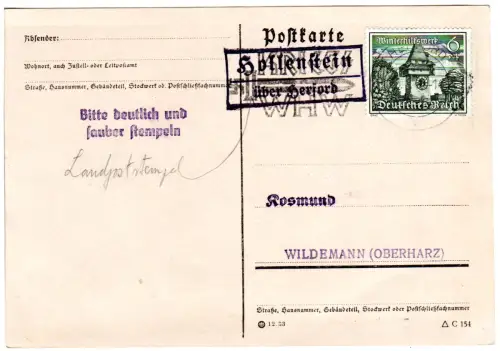 Absender:
Wohnort, auch Zustell- oder Leitpostamt
Straße, Hausnummer, Gebäudeteil, Stockwerk od. Postschließfachnummer
Bitte deutlich und
sauber stempeln
Landpoststempel
Postkarte
Hollenstein
über Herford
WHW
Winterhilfswerk 6
Deutsches Reich
Rosmund
WILDEMANN (OBERHARZ)
Straße, Hausnummer, Gebäudeteil, Stockwerk oder Postschließfachnummer
12.38
C 154